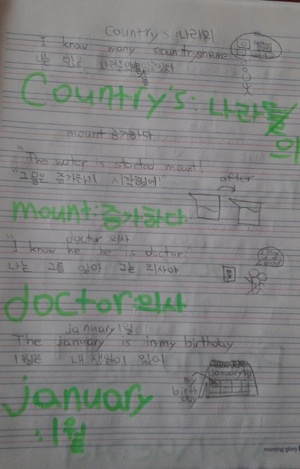 Country's 나라의
I know many countrysname
나는 많은
Country's: 나라의
mount 증가하다
"The water is started mount!
"그 물은 증가하기 시작했어"
after
mount:증가하다
doctor 의사
"I know he he is doctor"
나는 그를 알아 그는 의사야
doctor:의사
january 1월
The january is in my birthday
1월은 내 생일이 있어
january
my birth day
january
:1월
morning glory